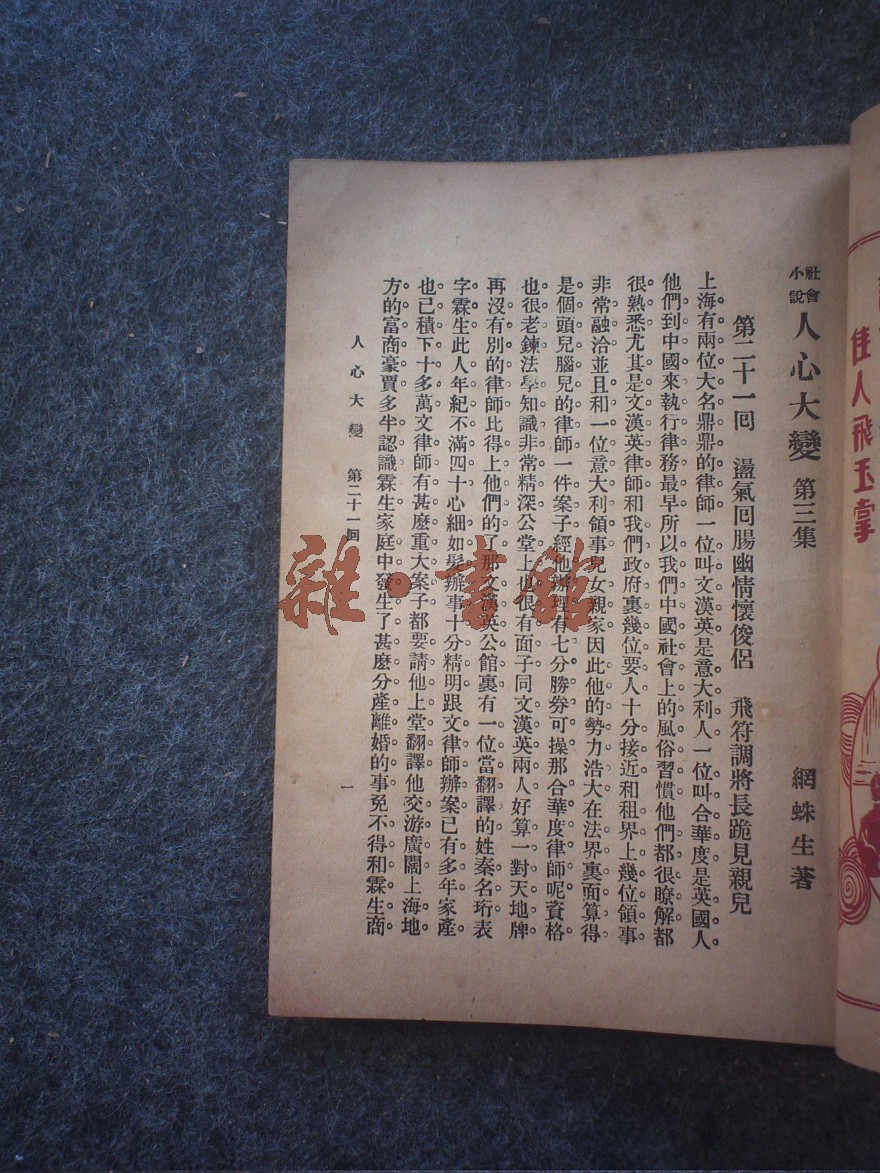 社會小說 人心大變 第三集 網蛛生著
第二十一回 盪氣回腸幽情懷俊侶 飛符調將長跪見親兒
上海有兩位大名鼎鼎的律師一位叫文漢英是意大利人一位叫合華度是英國人。
他們到中國來執行律務最早所以我們中國社會上的風俗習慣他們都很瞭解都
很熟悉尤其是文漢英律師和我們政府裏幾位要人十分接近和租界上幾位領事
非常融洽並且和一位意大利領事兒女親家因此他的勢力浩大在法界裏面算得
是個頭兒腦兒的律師一件案子經他辦理有七分勝劵可操那合華度律師呢資格
也很老鍊法學知識非常精深公堂上也很有面子同文漢英兩人好算一對天地牌
再沒有別的律師比得上他們的了那文漢英公館裏有一位當翻譯的姓秦名珩表
字霖生此人年紀不滿四十心細如髮辦事十分精明跟文律師辦案已有多年家產
也已積下十多萬文律師有甚麼重大案子都要請他上堂翻譯他交游廣闊上海地
方的富商豪賈多半認識霖生家庭中發生了甚麼分產離婚的事免不得和霖生商
人心大變 第二十一回 一
佳人飛玉掌
雜·書館